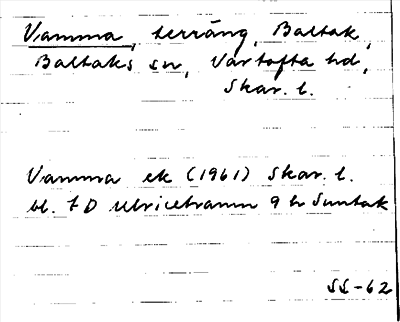 Vamma, terräng, Baltak,
Baltaks sn, Vartofta hd,
Skar. l.
Vamma ek (1961) Skar. l.
bl. 7 D Ulricehamn 9 h Suntak
SS-62